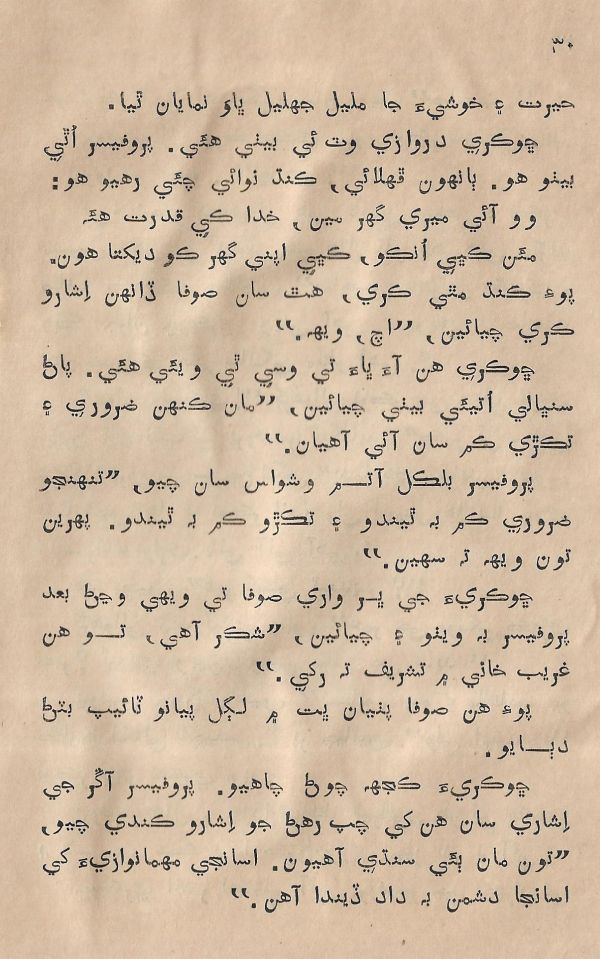 ٣٠
حيرت ۽ خوشيءَ جا مليل جهليل ڀاوَ نمايان ٿيا.
ڇوڪري دروازي وٽ ئي بيٺي هئي. پروفيسر اُٿي
بيٺو هو. ٻانهون ڦهلائي، ڪنڌ نوائي چئي رهيو هو:
وو آئي ميري گهر مين، خدا ڪي قدرت هئہ
مئن ڪڀي اُنڪو، ڪڀي اپني گهر ڪو ديکتا هون.
پوءِ ڪنڌ مٿي ڪري، هٿ سان صوفا ڏانهن اِشارو
ڪري چيائين، ”اچ، ويهہ.“
ڇوڪري هن آءَ ڀاءَ تي وسي ٿي ويئي هئي. پاڻ
سنڀالي اُتيئي بيٺي چيائين، ”مان ڪنهن ضروري ۽
تڪڙي ڪم سان آئي آهيان.“
پروفيسر بلڪل آتم وشواس سان چيو، ”تنهنجو
ضروري ڪم بہ ٿيندو ۽ تڪڙو ڪم بہ ٿيندو. پهرين
تون ويهہ تہ سهين.“
ڇوڪريءَ جي ڀر واري صوفا تي ويهي وڃڻ بعد
پروفيسر بہ ويٺو ۽ چيائين، ”شڪر آهي، تو هن
غريب خاني ۾ تشريف تہ رکي.“
پوءِ هن صوفا پٺيان ڀت ۾ لڳل پيانو ٽائيپ بٽڻ
دٻايو.
ڇوڪريءَ ڪجهہ چوڻ چاهيو. پروفيسر آڱر جي
اِشاري سان هن کي چپ رهڻ جو اِشارو ڪندي چيو،
”تون مان ٻئي سنڌي آهيون. اسانجي مهمانوازيءَ کي
اسانجا دشمن بہ داد ڏيندا آهن.“